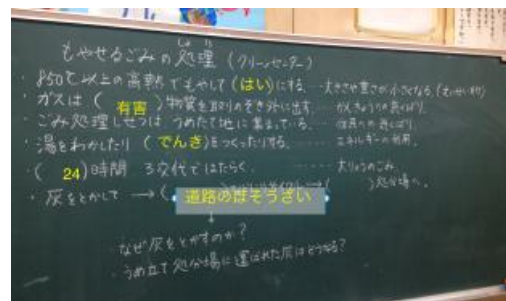 しょり
もやせるごみの処理 (クリーンセンター)
・850℃以上の高熱でもやして(はい)にする。…大きさや重さが小さくなる
・ガスは(有害)物質を取りのぞき外に出す。
・ごみ処理しせつは うめたて地に集まっている。
・湯をわかしたり(でんき)をつくったりする。……エネルギーの利用。
・(24)時間 3交代ではたらく。……大りょうのごみ。
・灰をとかして →( 道路のほそうざい )処分場へ。
↓
・なぜ灰をとかすのか?
・うめ立て処分場に運ばれた灰はどうなる?